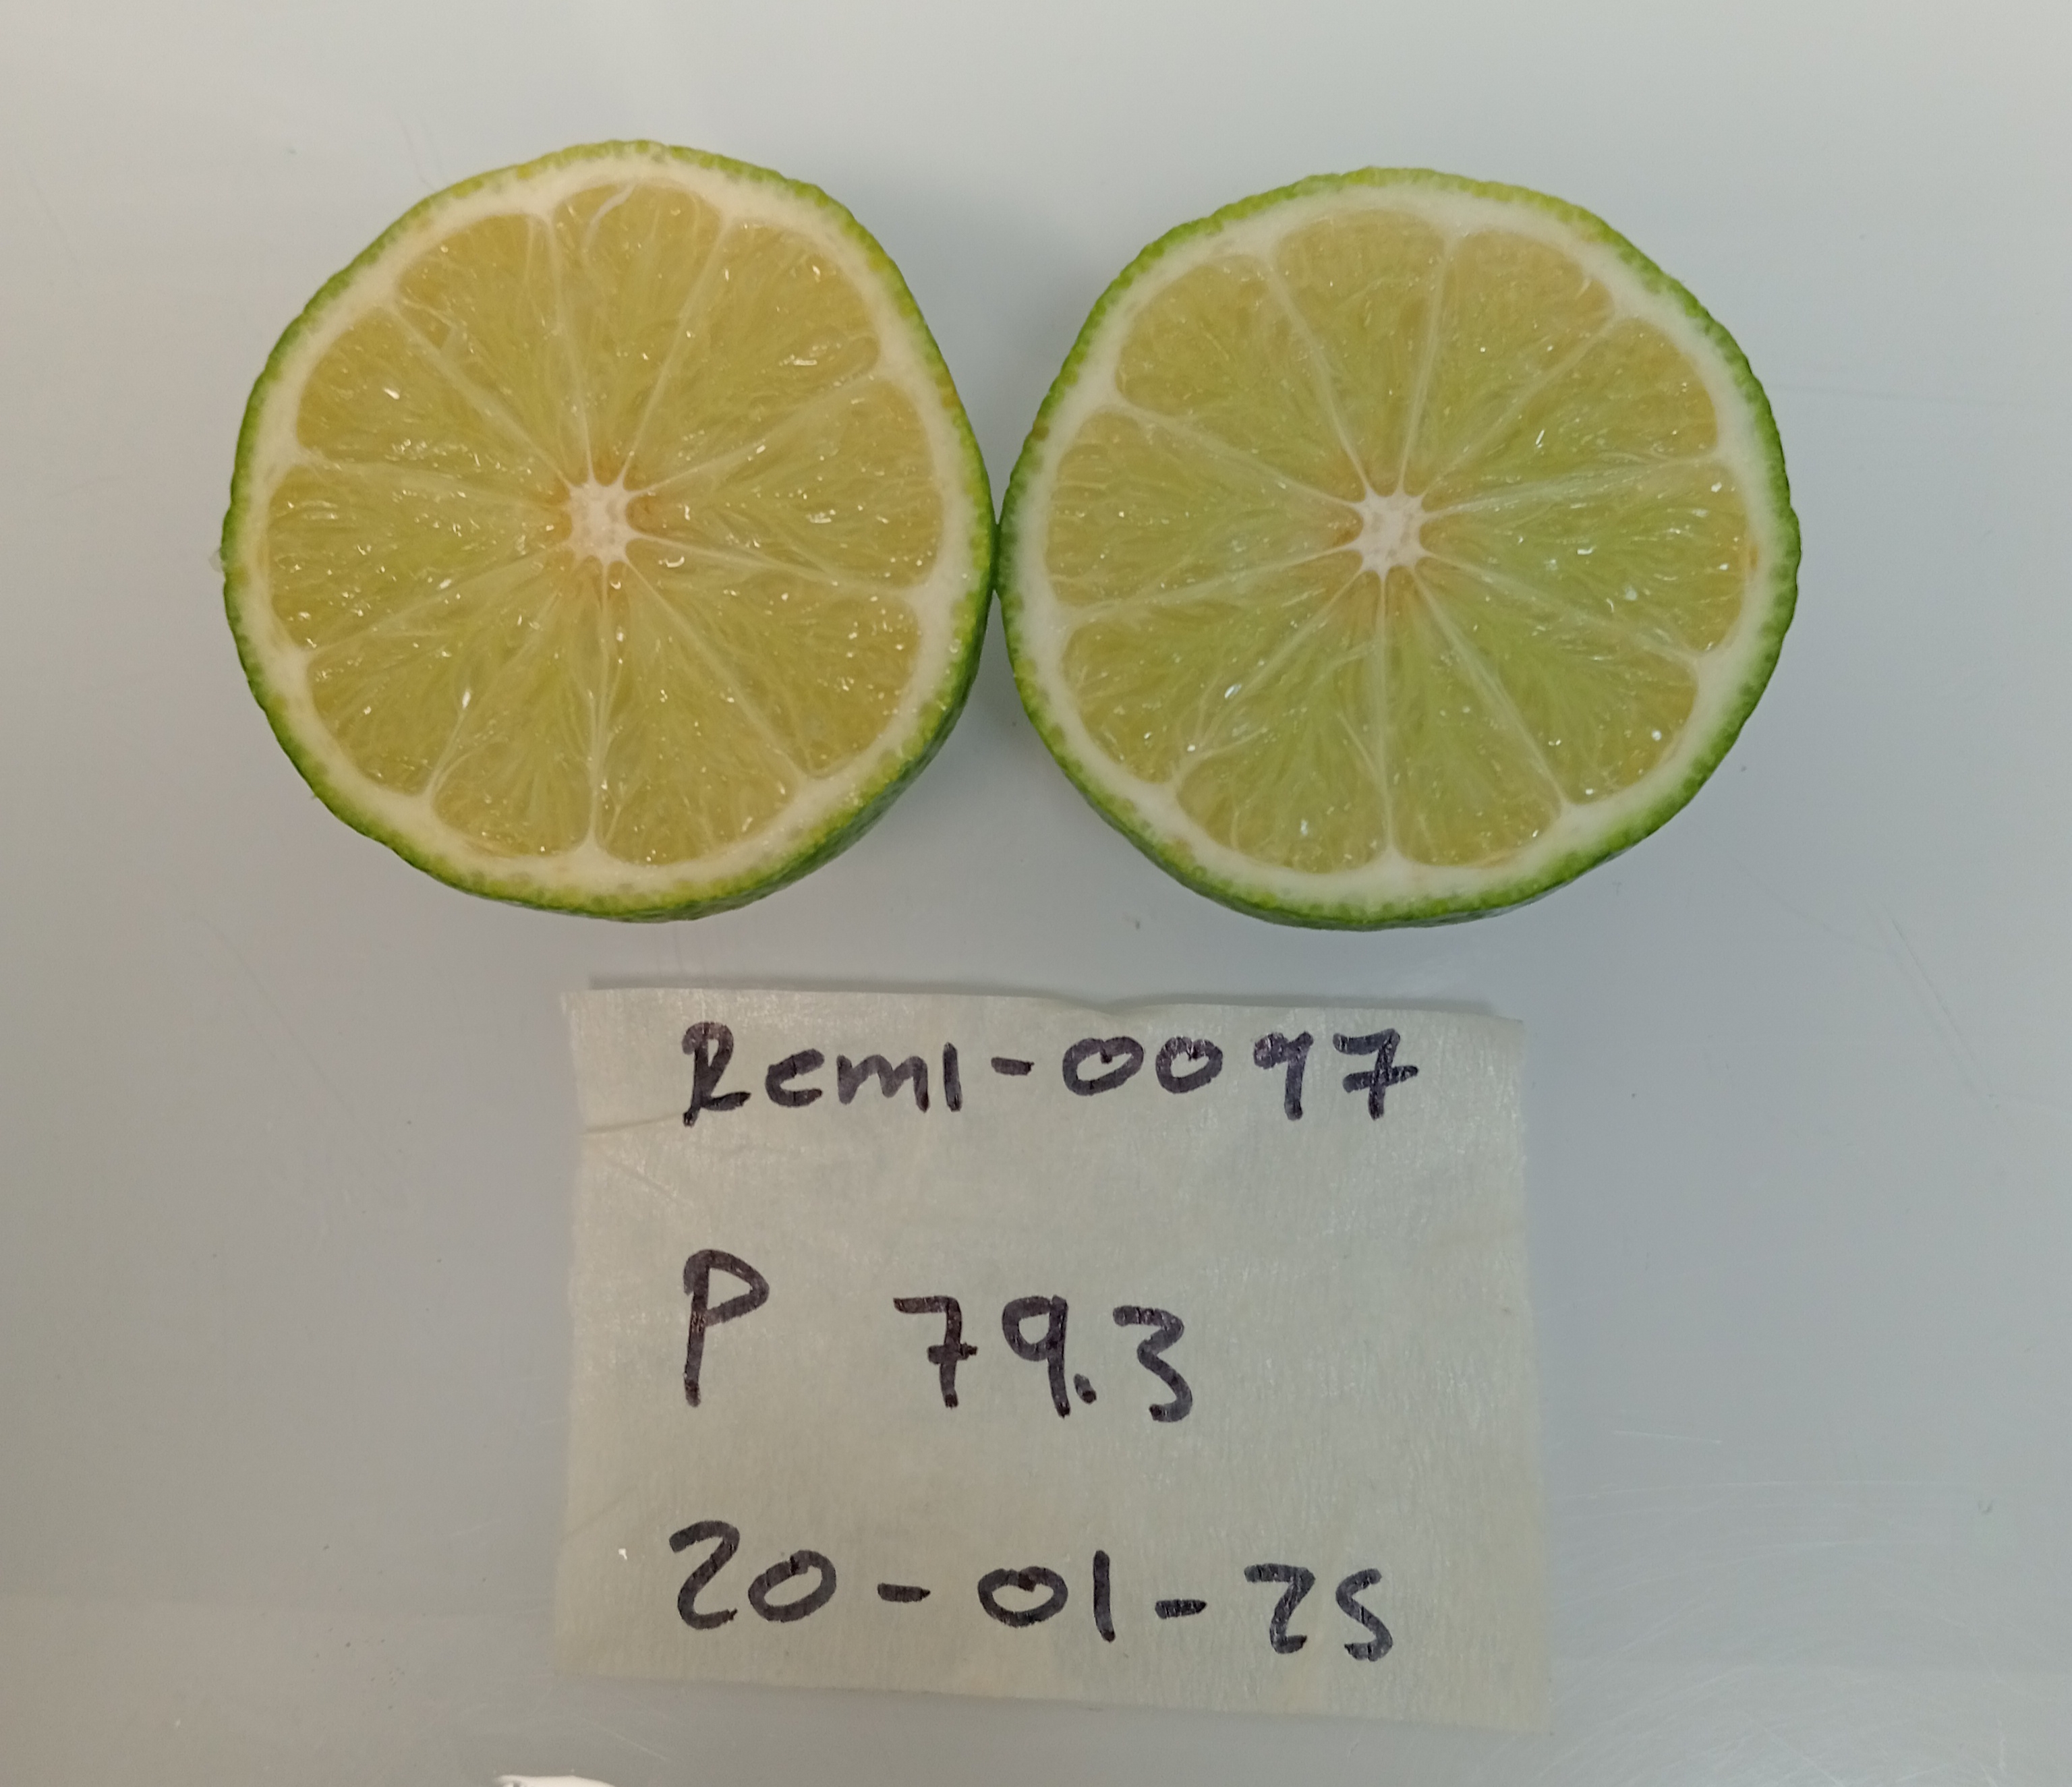 Reml-0097
P 79.3
20-01-25